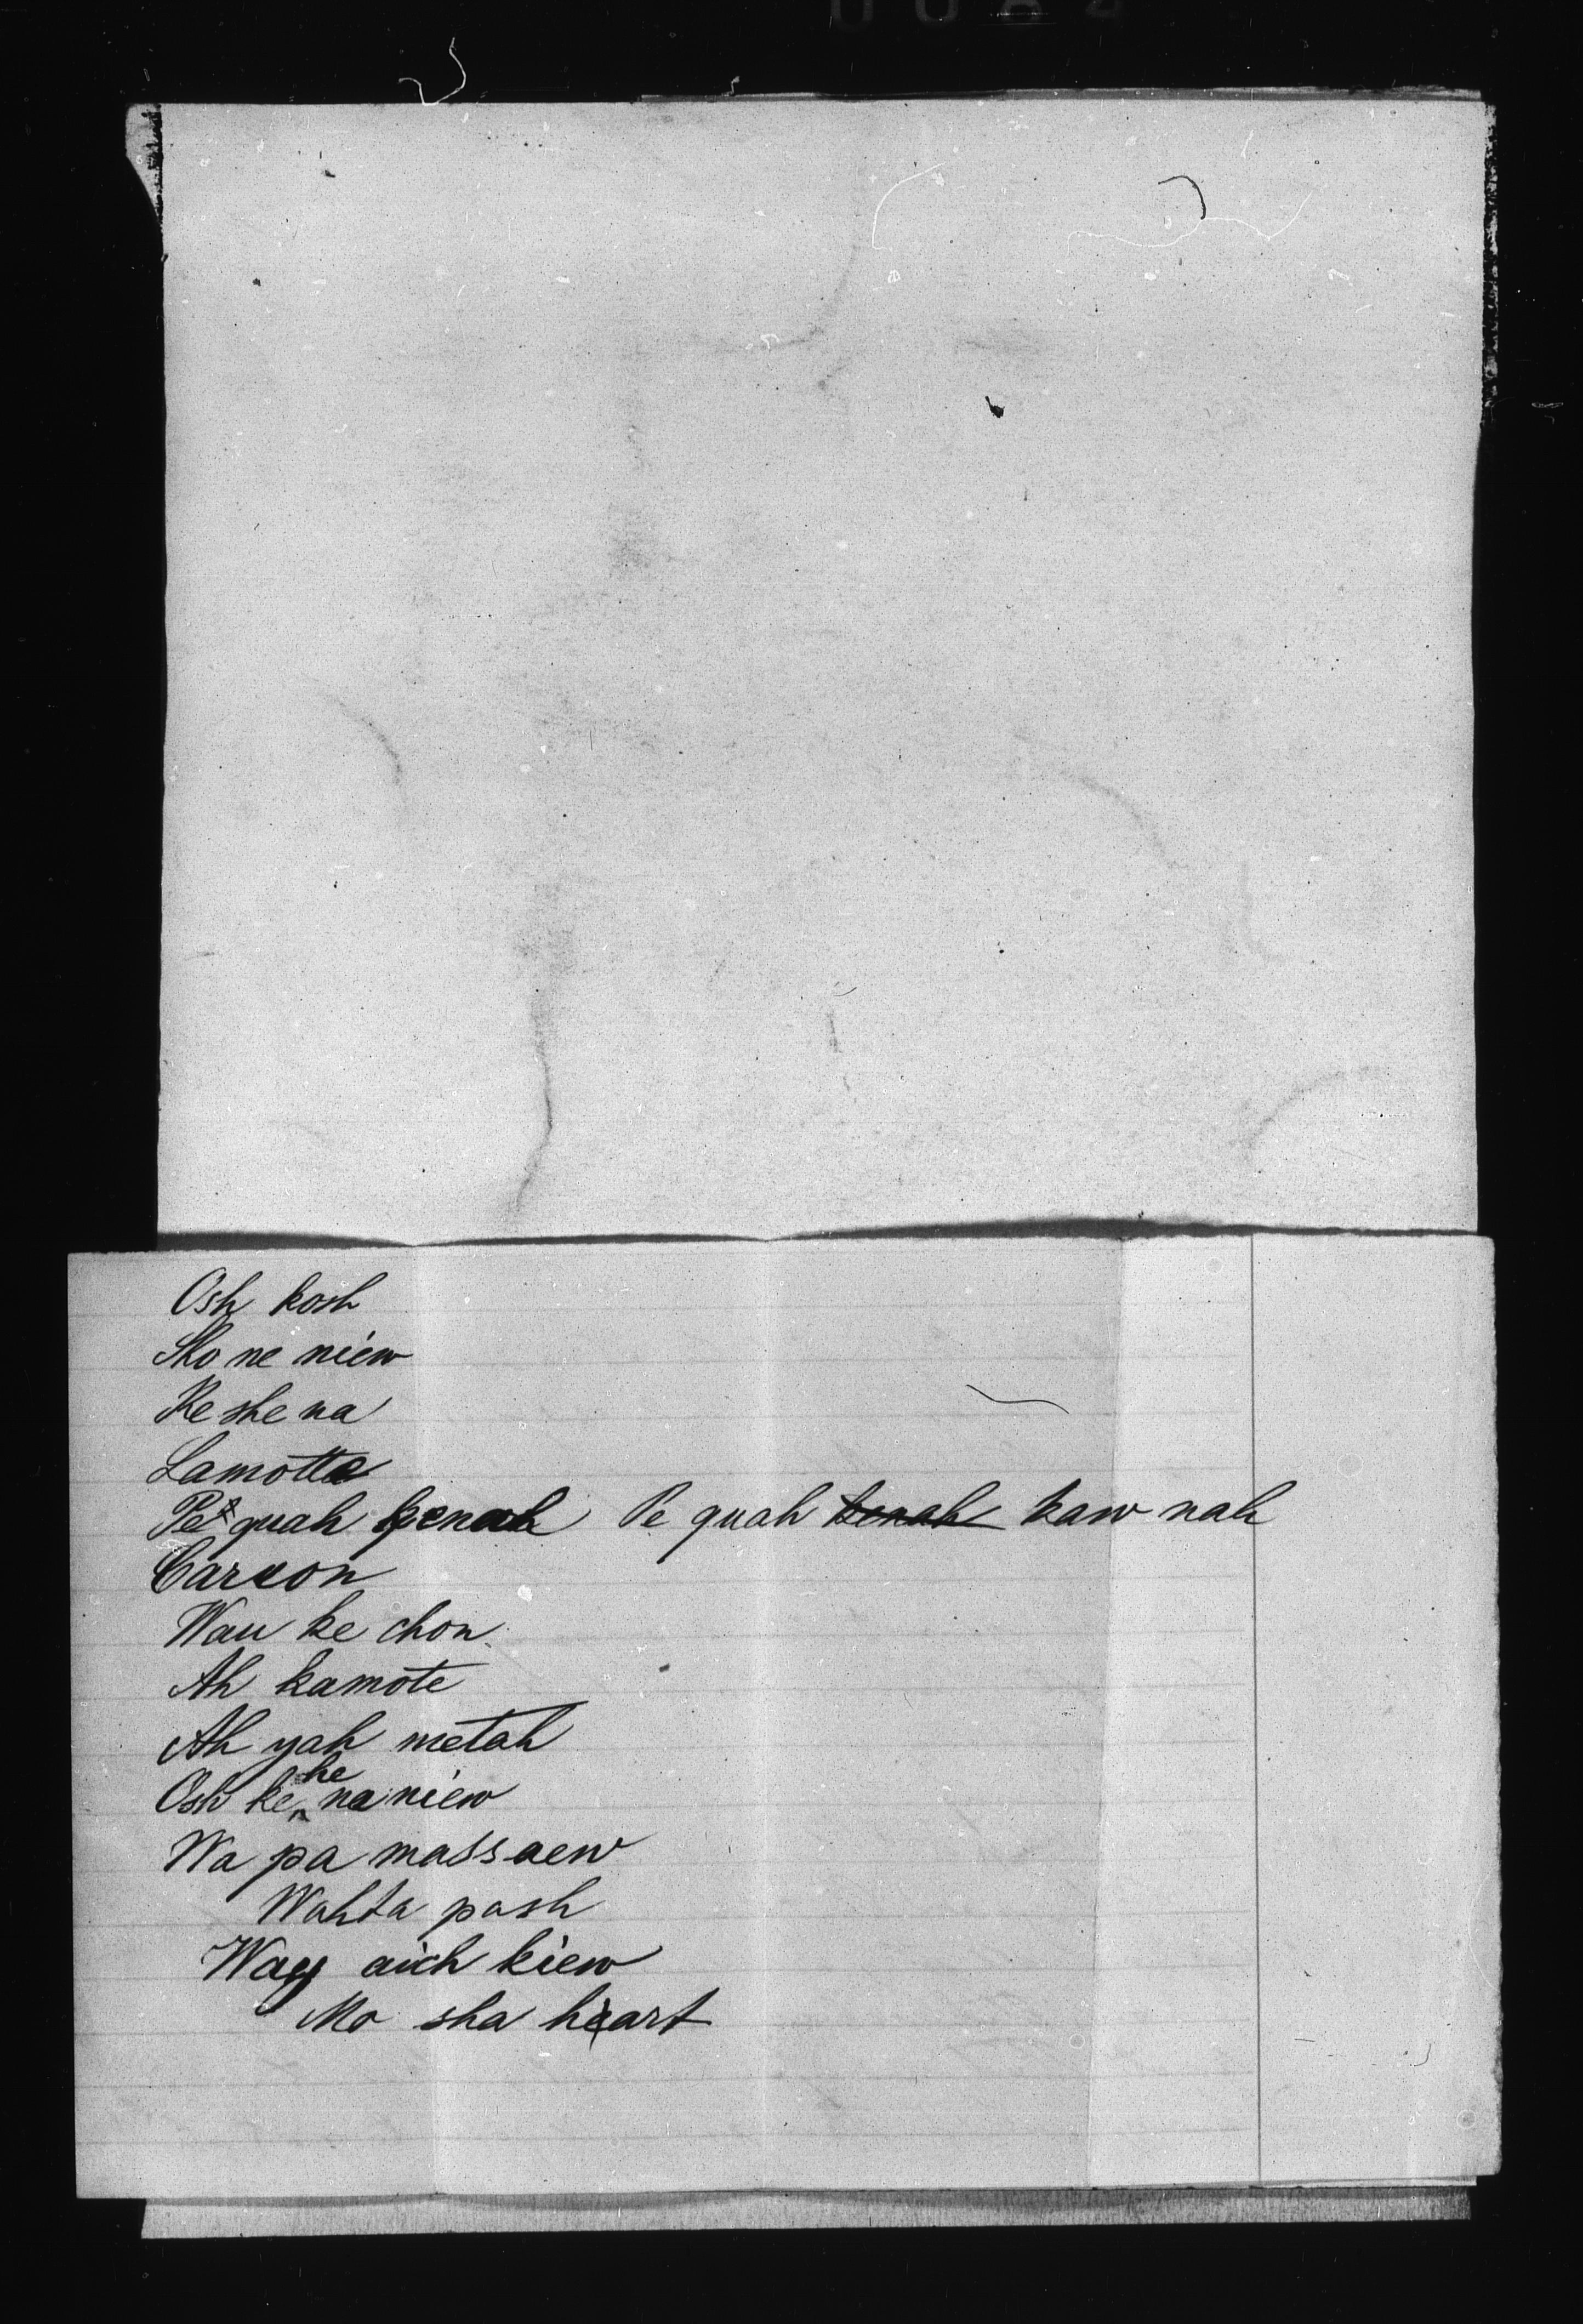 Osh kosh
Sho ne niew
Ke she na
Lamotte
Pe quah kenah Pe quah kenah kaw nah
Carron
Wau ke chon
Ah kamote
Ah yah metah
Osh ke he na niew
Wa pa massaew
Wahta pash
Way aich kiew
Mo sha heart